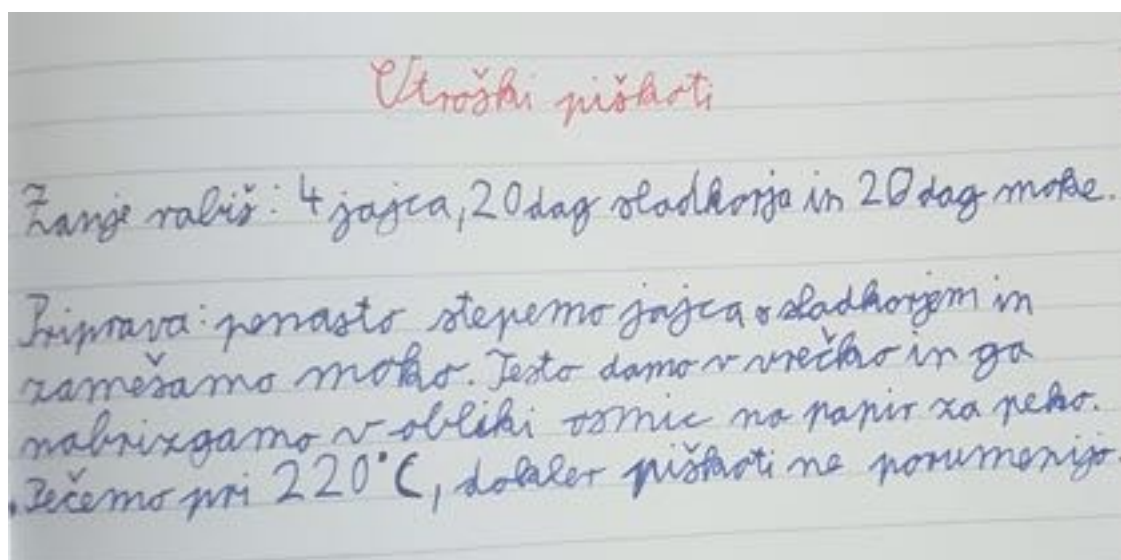 Otroški piškoti
Zanje rabiš: 4 jajca, 20 dag sladkorja in 20 dag moke.
Priprava: penasto stepemo jajca s sladkorjem in
zamešamo moko. Testo damo v vrečko in ga
nabrizgamo v obliki osmic na papir za peko.
Pečemo pri 220°C, dokler piškoti ne porumenijo.